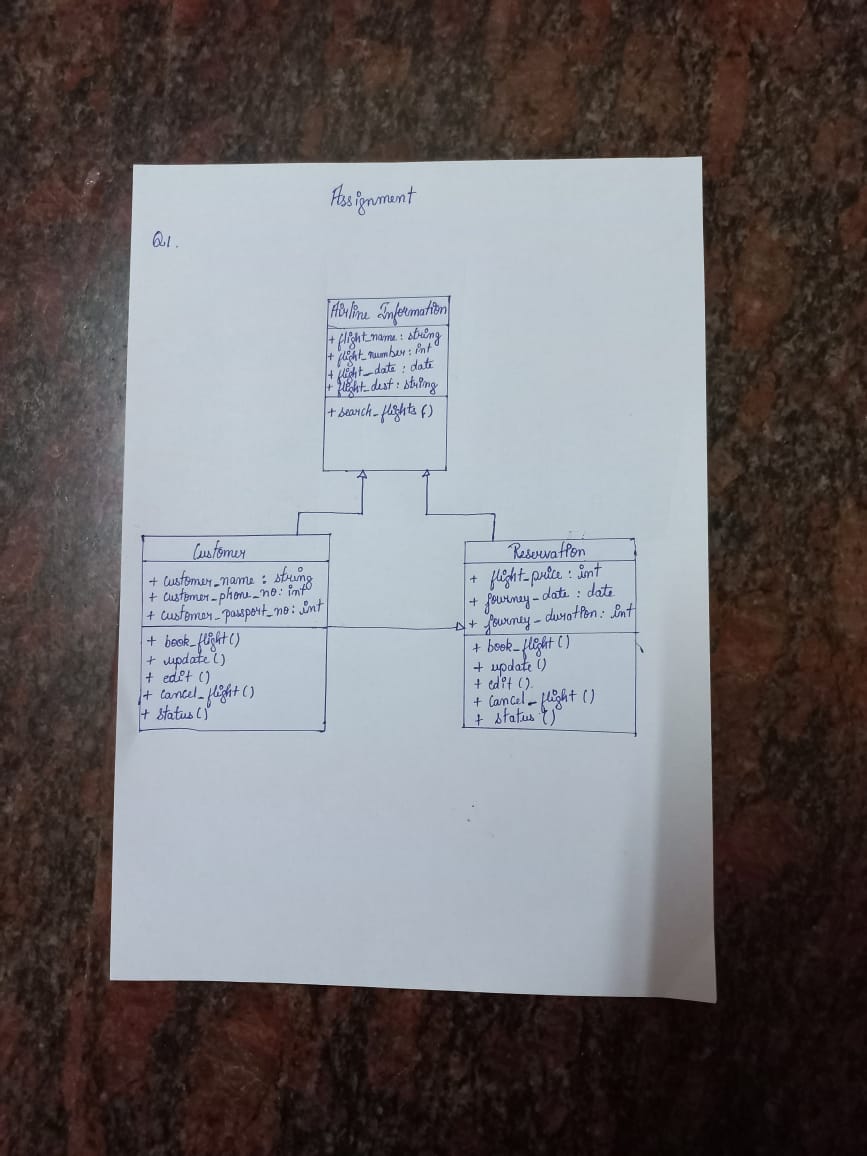 Assignment
Q1.
Airline Information
+ flight_name : string
+ flight_number : int
+ flight_date : date
+ flight_dest : string
+ search_flights ()
Customer
+ customer_name : string
+ customer_phone_no : int
+ customer_passport_no : int
+ book_flight ()
+ update ()
+ edit ()
+ cancel_flight ()
+ status ()
Reservation
+ flight_price : int
+ journey_date : date
+ journey_duration : int
+ book_flight ()
+ update ()
+ edit ()
+ cancel_flight ()
+ status ()